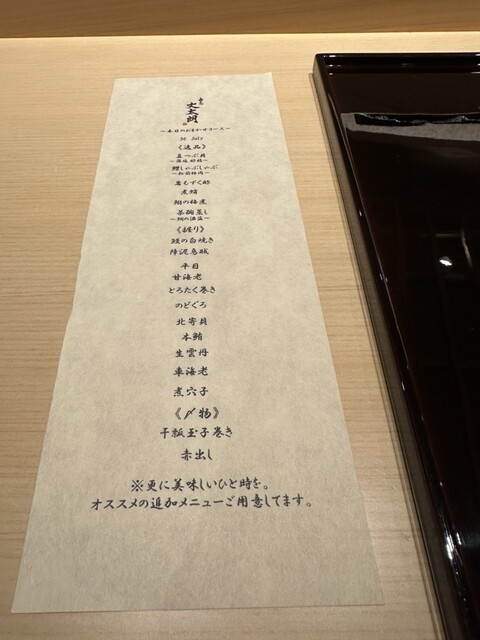 文太朗
～本日のおまかせコース～
30 July
《逸品》
真つぶ貝
鱧しゃぶしゃぶ
～松前梅肉～
岩もずく酢
煮蛸
鰯の梅煮
茶碗蒸し
《握り》
鰻の白焼き
障泥烏賊
平目
甘海老
とろたく巻き
のどぐろ
北寄貝
本鮪
生雲丹
車海老
煮穴子
《〆物》
干瓢玉子巻き
赤出し
※更に美味しいひと時を。
オススメの追加メニューご用意してます。